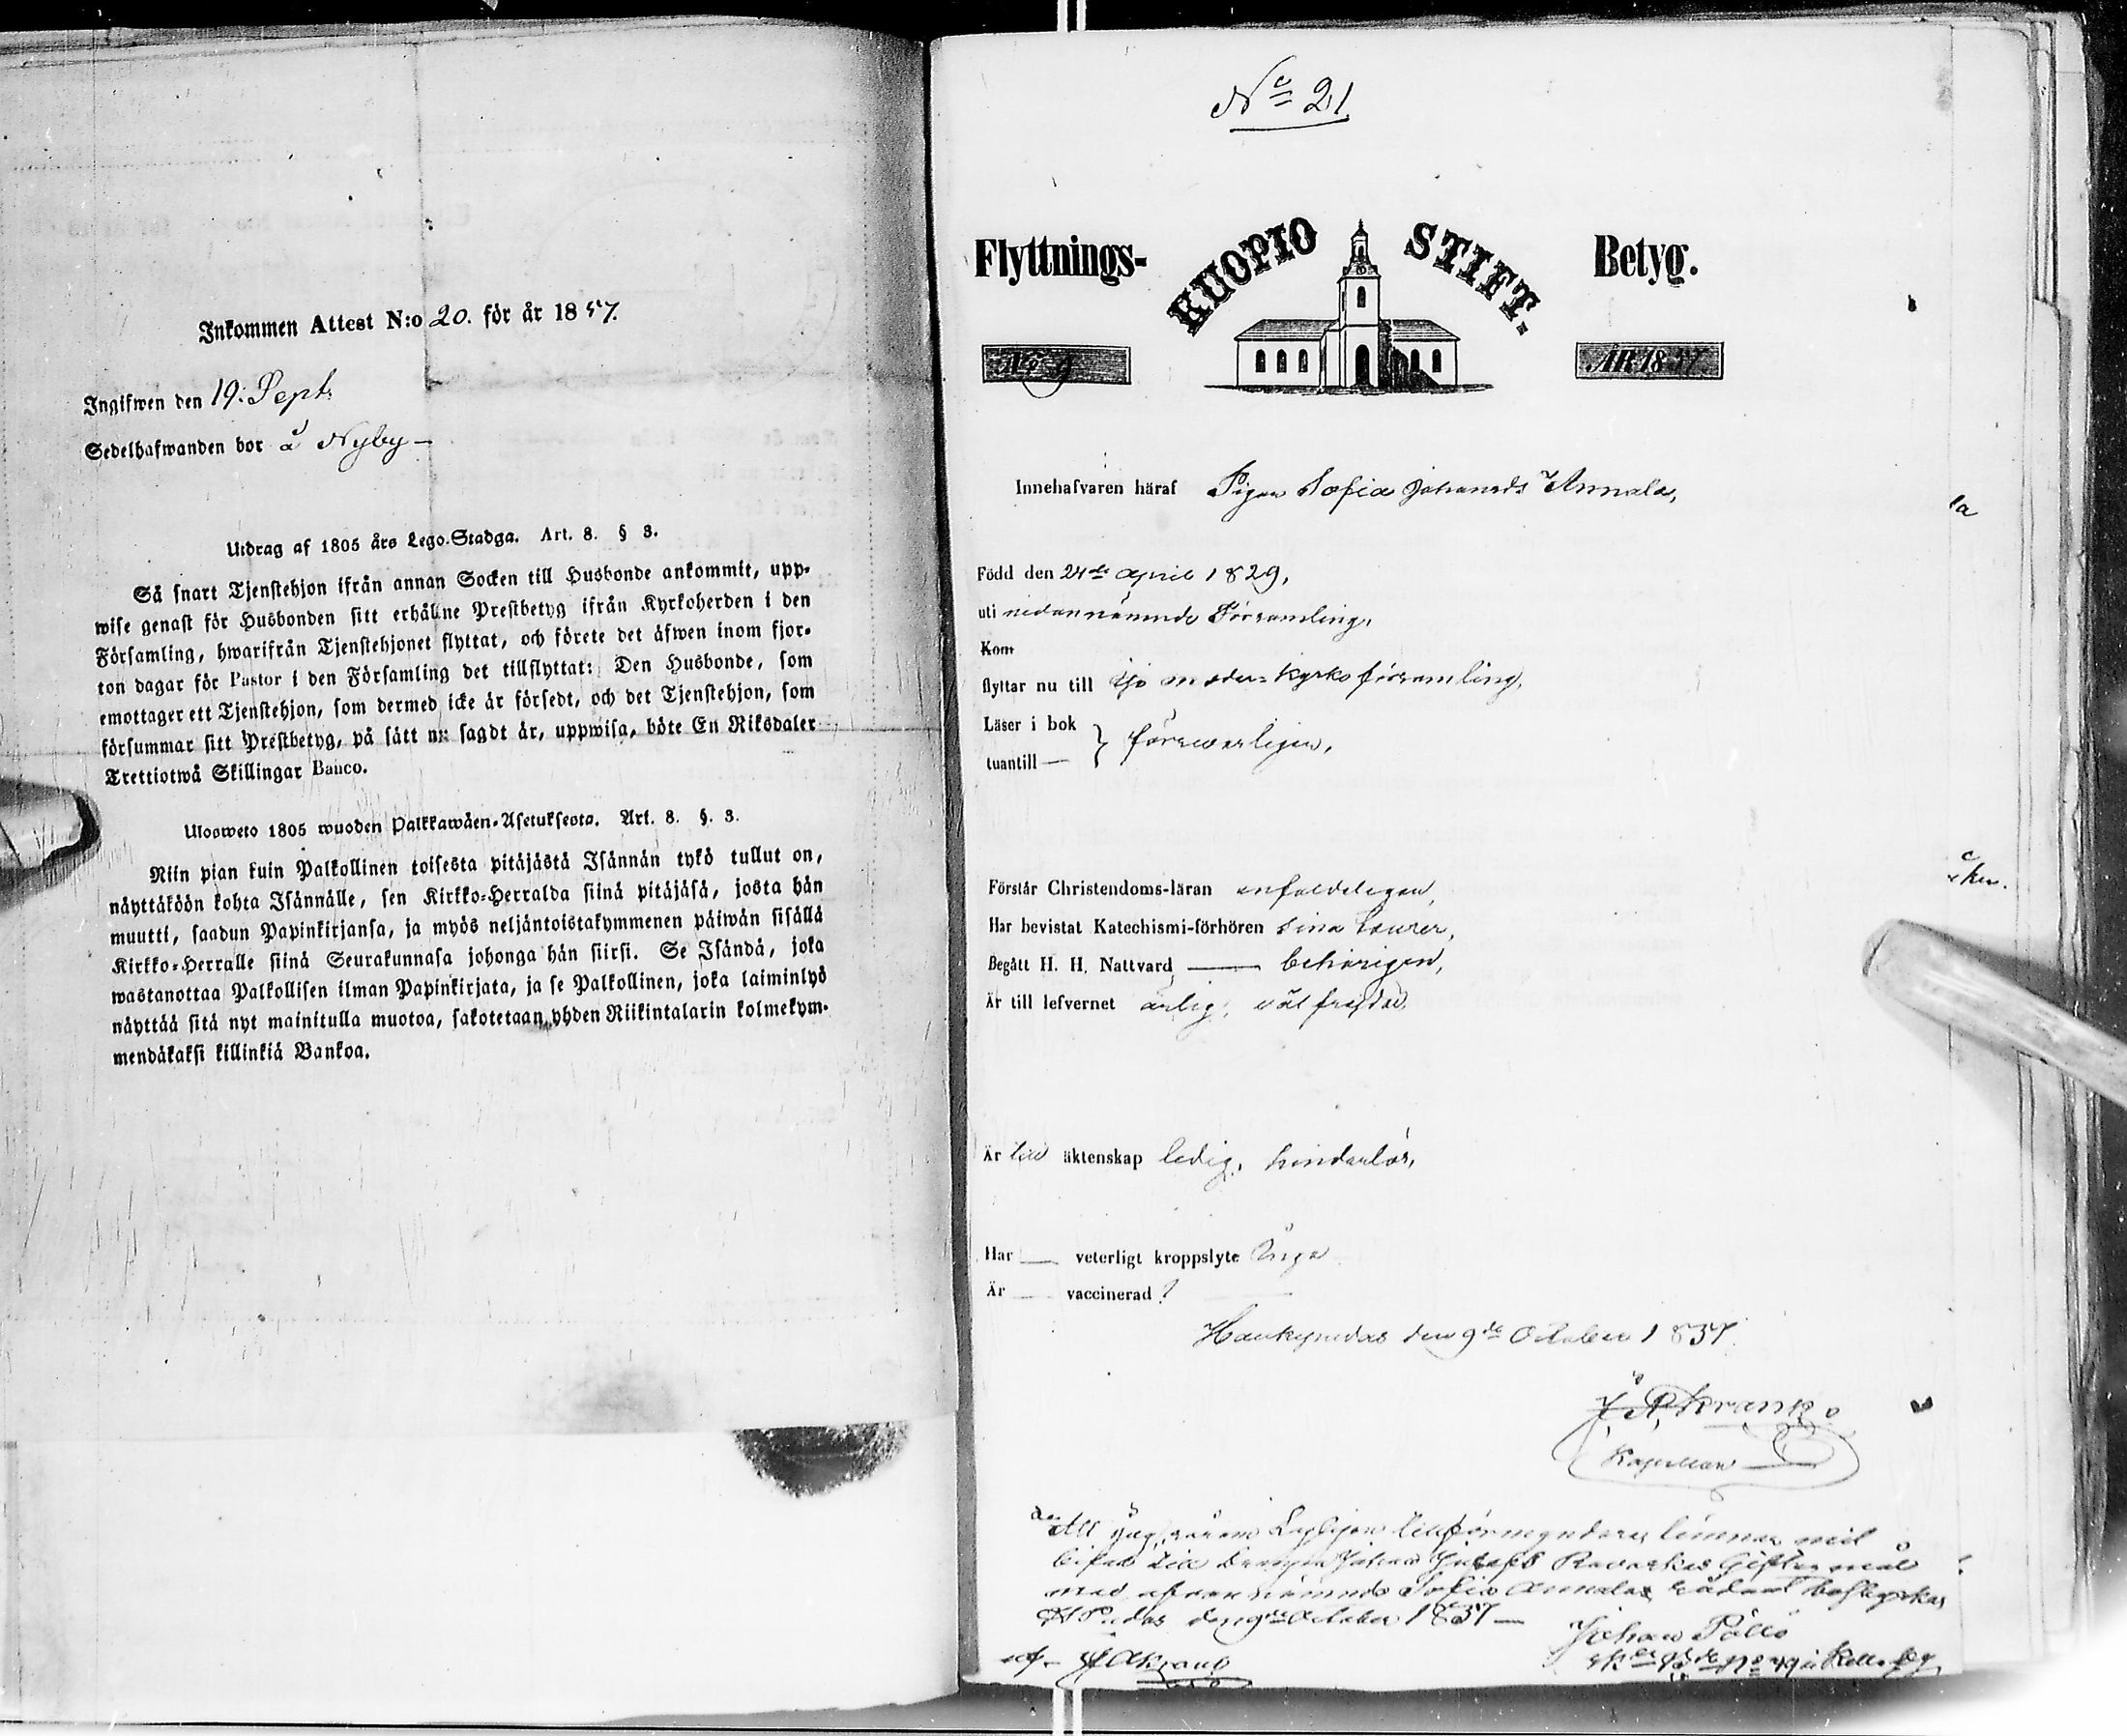 Inkommen Attest N:o 20. för år 1857.
Ingifwen den 19. Sept.
Sedelhafwanden bor å Nyby –
Utdrag af 1805 års Lego-Stadga. Art. 8. § 3.
Så snart Tjenstehjon ifrån annan Socken till Husbonde ankommit, upp-
wise genast för Husbonden sitt erhållne Prestbetyg ifrån Kyrkoherden i den
Församling, hwarifrån Tjenstehjonet flyttat, och förete det äfwen inom fjor-
ton dagar för Pastor i den Församling det tillflyttat: Den Husbonde, som
emottager ett Tjenstehjon, som dermed icke är försedt, och det Tjenstehjon, som
försummar sitt Prestbetyg, på sätt nu sagdt är, uppwisa, böte En Riksdaler
Trettiotwå Skillingar Banco.
Ulosweto 1805 wuoden Palkkawäen-Asetuksesta. Art. 8. §. 3.
Niin pian kuin Palkollinen toisesta pitäjästä Isännän tykö tullut on,
näyttäköön kohta Isännälle, sen Kirkko-Herralda siinä pitäjäsä, josta hän
muutti, saadun Papinkirjansa, ja myös neljäntoistakymmenen päiwän sisällä
Kirkko-Herralle siinä Seurakunnasa johonga hän siirsi. Se Isändä, joka
wastanottaa Palkollisen ilman Papinkirjata, ja se Palkollinen, joka laiminlyö
näyttää sitä nyt mainitulla muotoa, sakotetaan yhden Riikintalarin kolmekym-
mendäkaksi killinkiä Bankoa.
No 21
Flyttnings- KUOPIO STIFT. Betyg.
No 9 ÅR 1857.
Innehafvaren häraf Pigan Sofia Johansdr Annala,
Född den 24de April 1829,
uti nedannämnde Församling,
Kom
flyttar nu till Ijo moder-kyrko församling,
Läser i bok
tuantill — } försvarligen,
Förstår Christendoms-läran enfaldeligen,
Har bevistat Katechismi-förhören sina kurer,
Begått H. H. Nattvard — behörigen,
Är till lefvernet ärlig, väl frejdad,
Är till äktenskap ledig, hinderlös,
Har — veterligt kroppslyte Inga
Är — vaccinerad ?
Haukipudas den 9de October 1857.
Kapellan
med ofvan nämnde Sofia Annala
den 9de October 1857 —
Johan